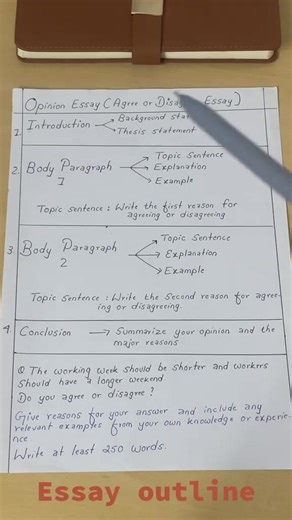 Opinion Essay (Agree or Essay)
1. Introduction → Background
→ Thesis statement
2. Body Paragraph 1 → Topic Sentence
→ Explanation
→ Example
Topic sentence : Write the first reason for
agreeing or disagreeing
3. Body Paragraph 2 → Topic Sentence
→ Explanation
→ Example
Topic sentence : Write the Second reason for agree-
ing or disagreeing.
4. Conclusion → Summarize your opinion and the
major reasons
Q The working week should be shorter and workers
Should have a longer weekend.
Do you agree or disagree?
Give reasons for your answer and include any
relevant examples from your own knowledge or experie-
nce
Write at least 250 words.
Essay outline